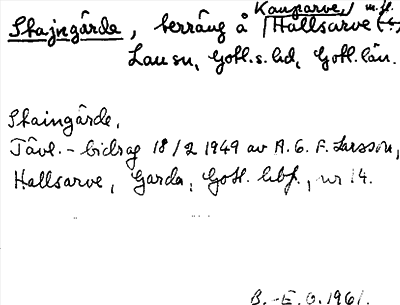 Kauparve, m.fl.
Stajngårde, terräng å Hallsarve
Lau sn, Gotl. s. hd, Gotl. län.
Staingårde.
Tävl.-bidrag 18/2 1949 av A. G. F. Larsson,
Hallsarve, Garda, Gotl. hbf., nr 14.
B.-E. O. 1961.